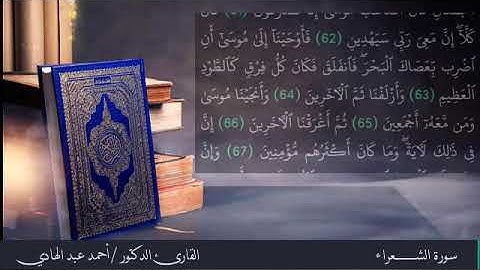 (61) قَالَ
كَلَّآ إِنَّ مَعِىَ رَبِّى سَيَهْدِينِ (62) فَأَوْحَيْنَآ إِلَىٰ مُوسَىٰٓ أَنِ
ٱضْرِب بِّعَصَاكَ ٱلْبَحْرَ فَٱنفَلَقَ فَكَانَ كُلُّ فِرْقٍ كَٱلطَّوْدِ
ٱلْعَظِيمِ (63) وَأَزْلَفْنَا ثَمَّ ٱلْآخَرِينَ (64) وَأَنجَيْنَا مُوسَىٰ
وَمَن مَّعَهُۥٓ أَجْمَعِينَ (65) ثُمَّ أَغْرَقْنَا ٱلْآخَرِينَ (66) إِنَّ
فِى ذَٰلِكَ لَآيَةً وَمَا كَانَ أَكْثَرُهُم مُّؤْمِنِينَ (67) وَإِنَّ
سورة الشـــعراء
القارئ الدكتور / أحمد عبد الهادي